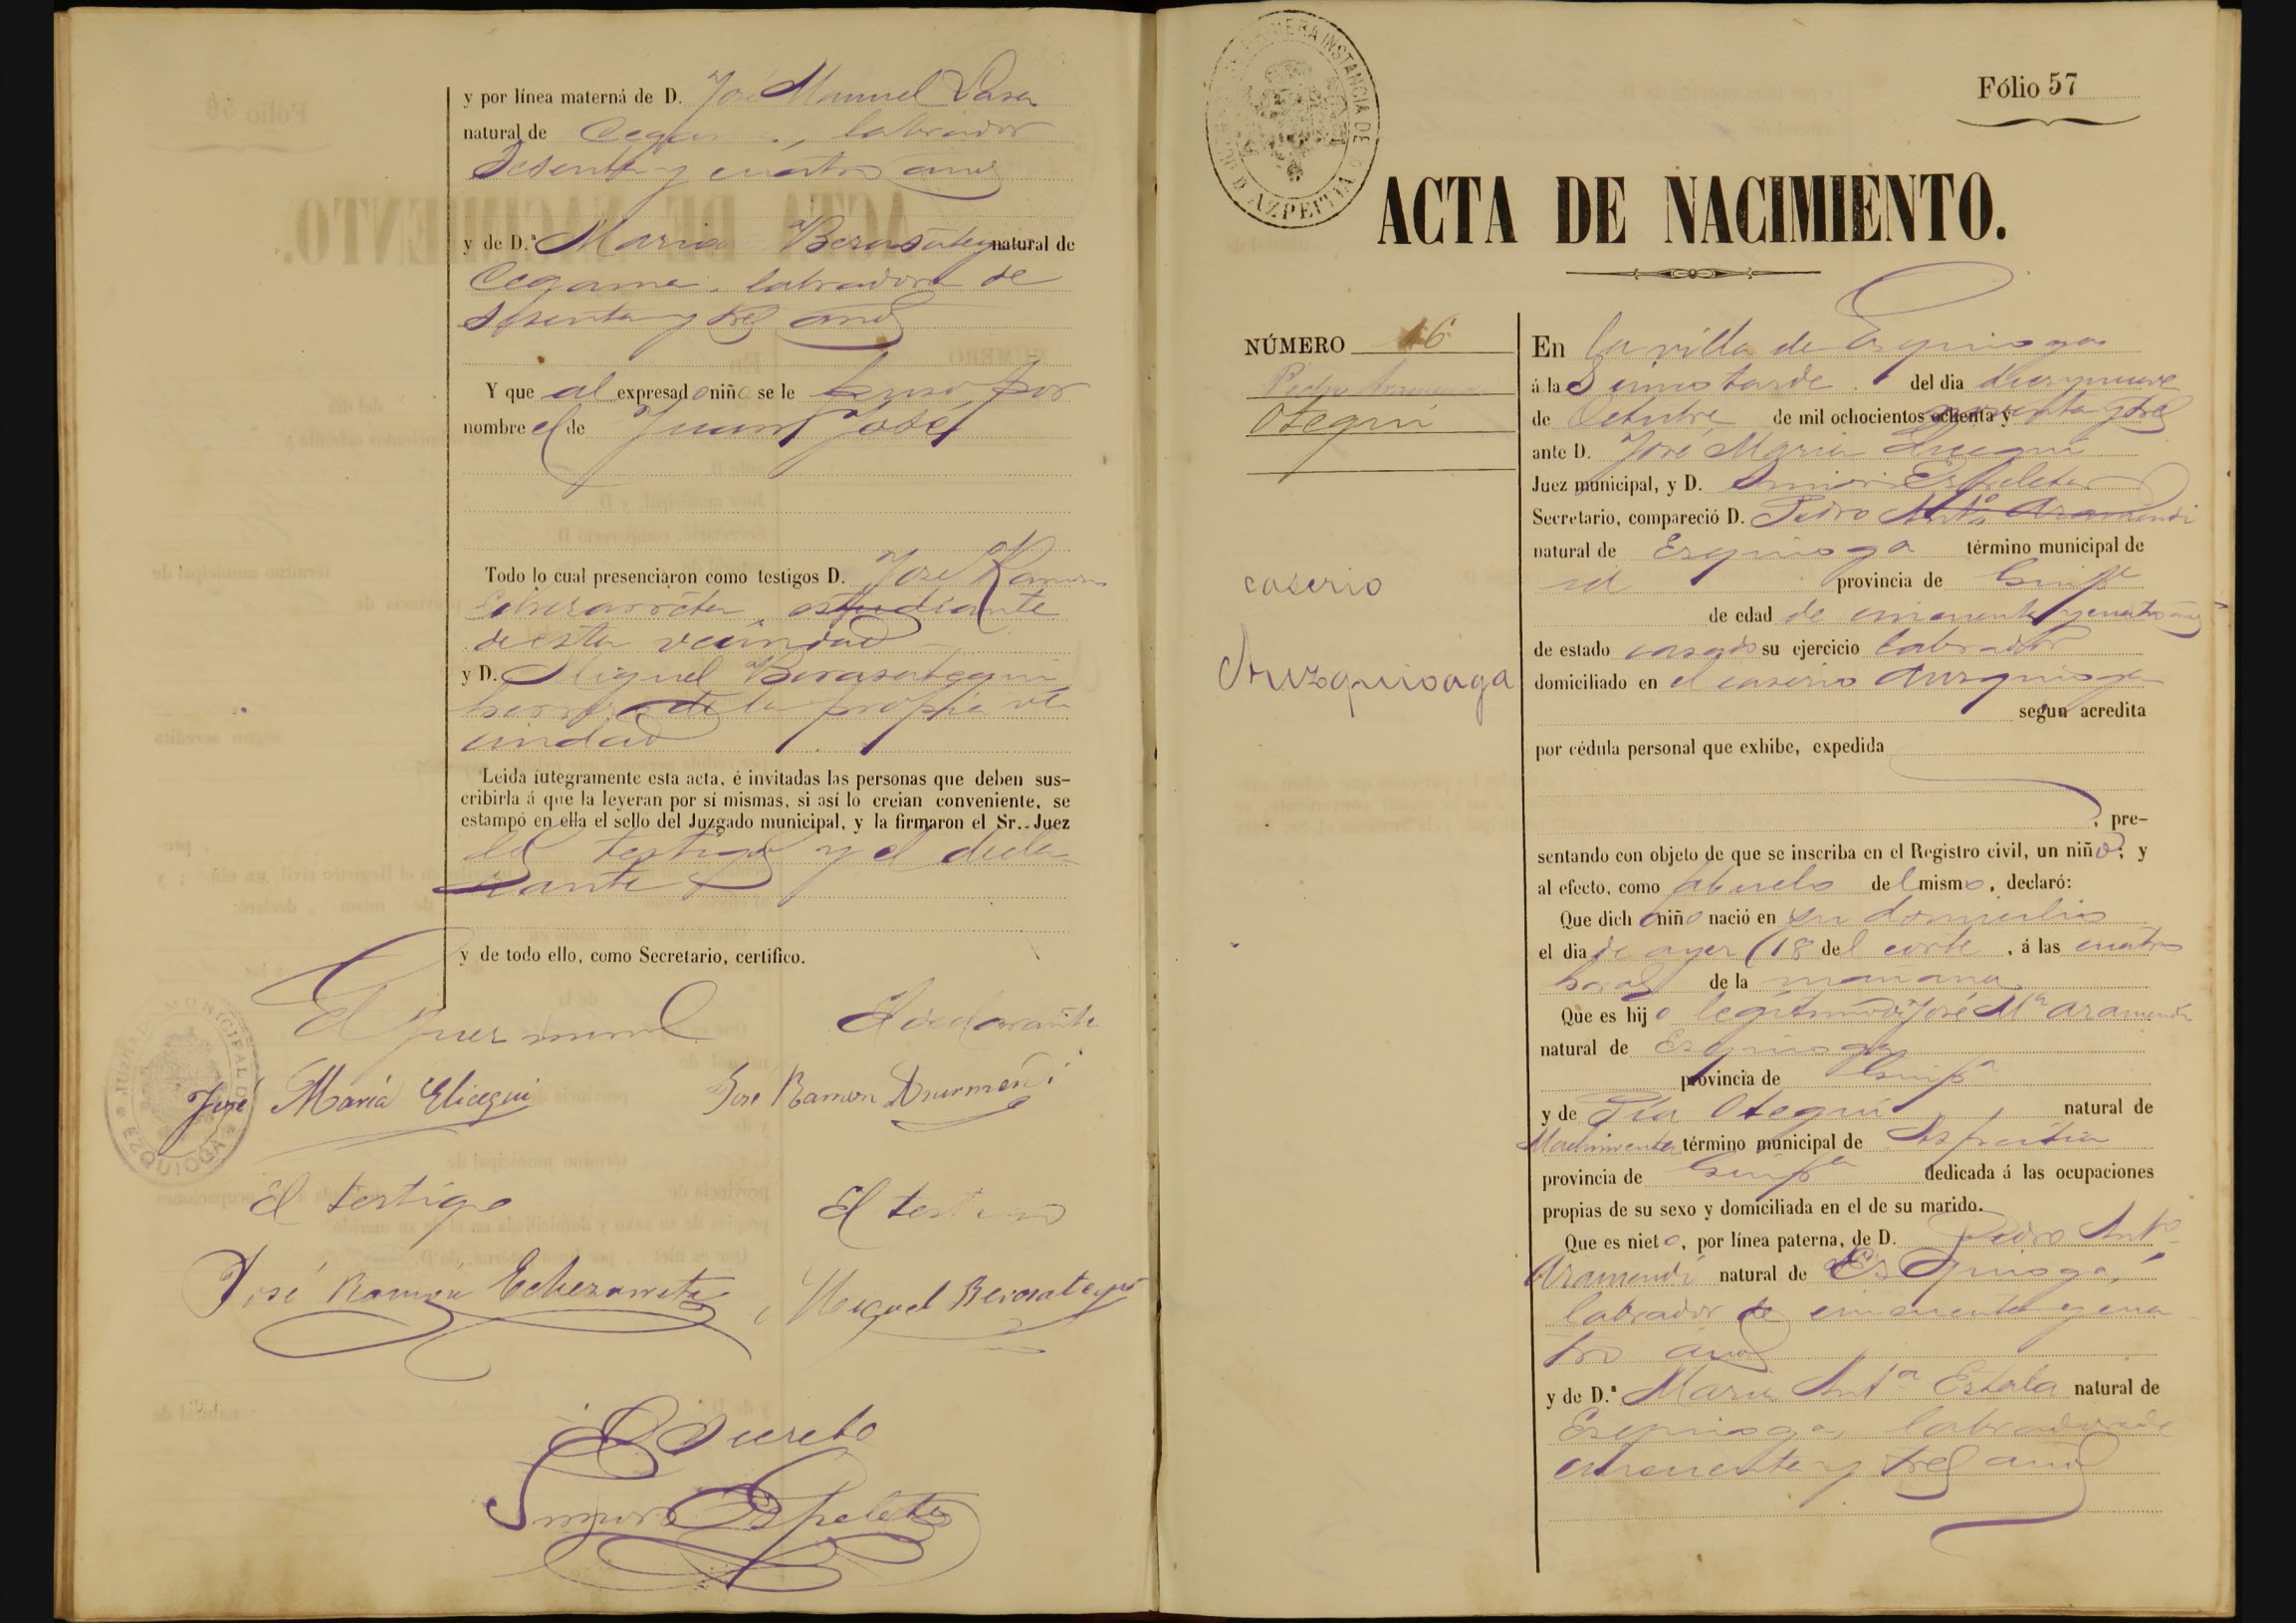 y por línea materna de D. José Manuel Lasa
natural de Cegama, labrador
Sesenta y cuatro años
y de D.ª Maria Berasategui natural de
Cegama, labradora de
sesenta y tres años
Y que al expresado niño se le puso por
nombre el de Juan José
Todo lo cual presenciaron como testigos D. José Ramon
Echezarreta, estudiante
de esta vecindad
y D. Miguel Berasategui
herrero de la propia ve
cindad
Leida íutegramente esta acta, é invitadas las personas que deben sus-
cribirla á que la leyeran por sí mismas, si así lo creian conveniente, se
estampó en ella el sello del Juzgado municipal, y la firmaron el Sr. Juez
los testigos y el decla
rante
y de todo ello, como Secretario, certifico.
El Juez munl
El declarante
José María Elicegui
José Ramon
El testigo
El testigo
José Ramón Echezarreta
Miguel Berasategui
El Secreto
Espeleta
JUZGADO MUNICIPAL DE EZQUIOGA
PRIMERA INSTANCIA DE AZPEITIA
Fólio 57
ACTA DE NACIMIENTO.
NÚMERO 46
Pedro Aramendi
Otegui
caserio
Aruzquisaga
En la villa de Ezquioga
á las cinco tarde del dia diez y nueve
de Octubre de mil ochocientos ochenta y noventa y tres
ante D. José Maria Elicegui
Juez municipal, y D. Espeleta
Secretario, compareció D. Pedro Antº Aramendi
natural de Ezquioga término municipal de
id provincia de Guipª
de edad de cincuenta y cuatro años
de estado casado su ejercicio labrador
domiciliado en el caserio
segun acredita
por cédula personal que exhibe, expedida
, pre-
sentando con objeto de que se inscriba en el Registro civil, un niño; y
al efecto, como abuelo del mismo, declaró:
Que dicho niño nació en su domicilio
el dia de ayer (18 del corte, á las cuatro
horas de la mañana
Que es hijo legitimo de José Mª Aramendi
natural de Ezquioga
provincia de Guipª
y de Pia Otegui natural de
Machinventa término municipal de Azpeitia
provincia de Guipª dedicada á las ocupaciones
propias de su sexo y domiciliada en el de su marido.
Que es nieto, por línea paterna, de D. Pedro Antº
Aramendi natural de Ezquioga,
labrador de cincuenta y cua
tro años
y de D.ª Maria Antª Estala natural de
Ezquioga, labradora de
cincuenta y tres años